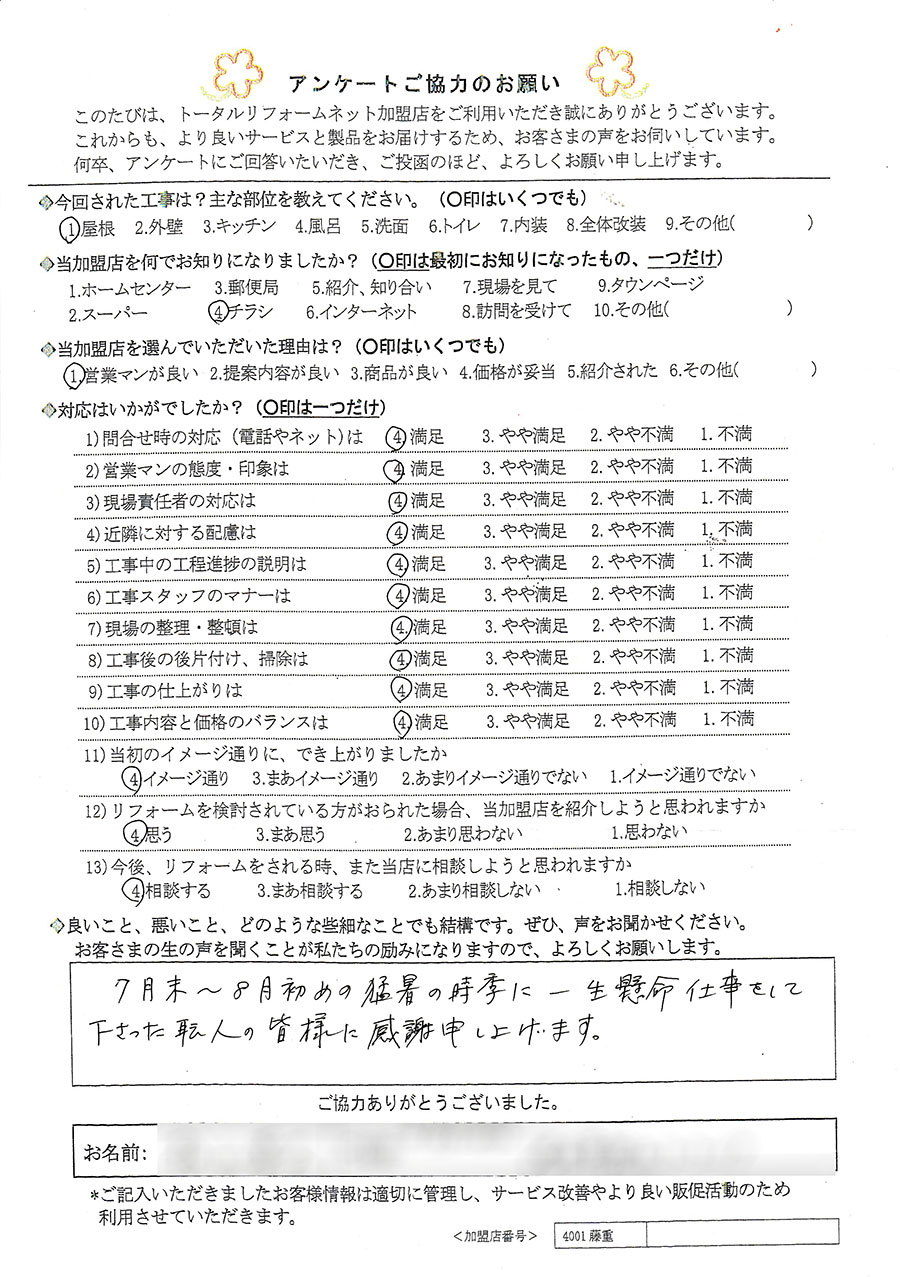 アンケートご協力のお願い
このたびは、トータルリフォームネット加盟店をご利用いただき誠にありがとうございます。
これからも、より良いサービスと製品をお届けするため、お客さまの声をお伺いしています。
何卒、アンケートにご回答いたいだき、ご投函のほど、よろしくお願い申し上げます。
◆今回された工事は？主な部位を教えてください。（〇印はいくつでも）
①屋根 2.外壁 3.キッチン 4.風呂 5.洗面 6.トイレ 7.内装 8.全体改装 9.その他( )
◆当加盟店を何でお知りになりましたか？（〇印は最初にお知りになったもの、一つだけ）
1.ホームセンター 3.郵便局 5.紹介、知り合い 7.現場を見て 9.タウンページ
2.スーパー ④チラシ 6.インターネット 8.訪問を受けて 10.その他( )
◆当加盟店を選んでいただいた理由は？（〇印はいくつでも）
①営業マンが良い 2.提案内容が良い 3.商品が良い 4.価格が妥当 5.紹介された 6.その他( )
◆対応はいかがでしたか？（〇印は一つだけ）
1)問合せ時の対応（電話やネット)は ④満足 3.やや満足 2.やや不満 1.不満
2)営業マンの態度・印象は ④満足 3.やや満足 2.やや不満 1.不満
3)現場責任者の対応は ④満足 3.やや満足 2.やや不満 1.不満
4)近隣に対する配慮は ④満足 3.やや満足 2.やや不満 1.不満
5)工事中の工程進捗の説明は ④満足 3.やや満足 2.やや不満 1.不満
6)工事スタッフのマナーは ④満足 3.やや満足 2.やや不満 1.不満
7)現場の整理・整頓は ④満足 3.やや満足 2.やや不満 1.不満
8)工事後の後片付け、掃除は ④満足 3.やや満足 2.やや不満 1.不満
9)工事の仕上がりは ④満足 3.やや満足 2.やや不満 1.不満
10)工事内容と価格のバランスは ④満足 3.やや満足 2.やや不満 1.不満
11)当初のイメージ通りに、でき上がりましたか
④イメージ通り 3.まあイメージ通り 2.あまりイメージ通りでない 1.イメージ通りでない
12)リフォームを検討されている方がおられた場合、当加盟店を紹介しようと思われますか
④思う 3.まあ思う 2.あまり思わない 1.思わない
13)今後、リフォームをされる時、また当店に相談しようと思われますか
④相談する 3.まあ相談する 2.あまり相談しない 1.相談しない
◆良いこと、悪いこと、どのような些細なことでも結構です。ぜひ、声をお聞かせください。
お客さまの生の声を聞くことが私たちの励みになりますので、よろしくお願いします。
7月末～8月初めの猛暑の時季に一生懸命仕事をして
下さった職人の皆様に感謝申し上げます。
ご協力ありがとうございました。
お名前:
*ご記入いただきましたお客様情報は適切に管理し、サービス改善やより良い販促活動のため
利用させていただきます。
＜加盟店番号＞ 4001藤重